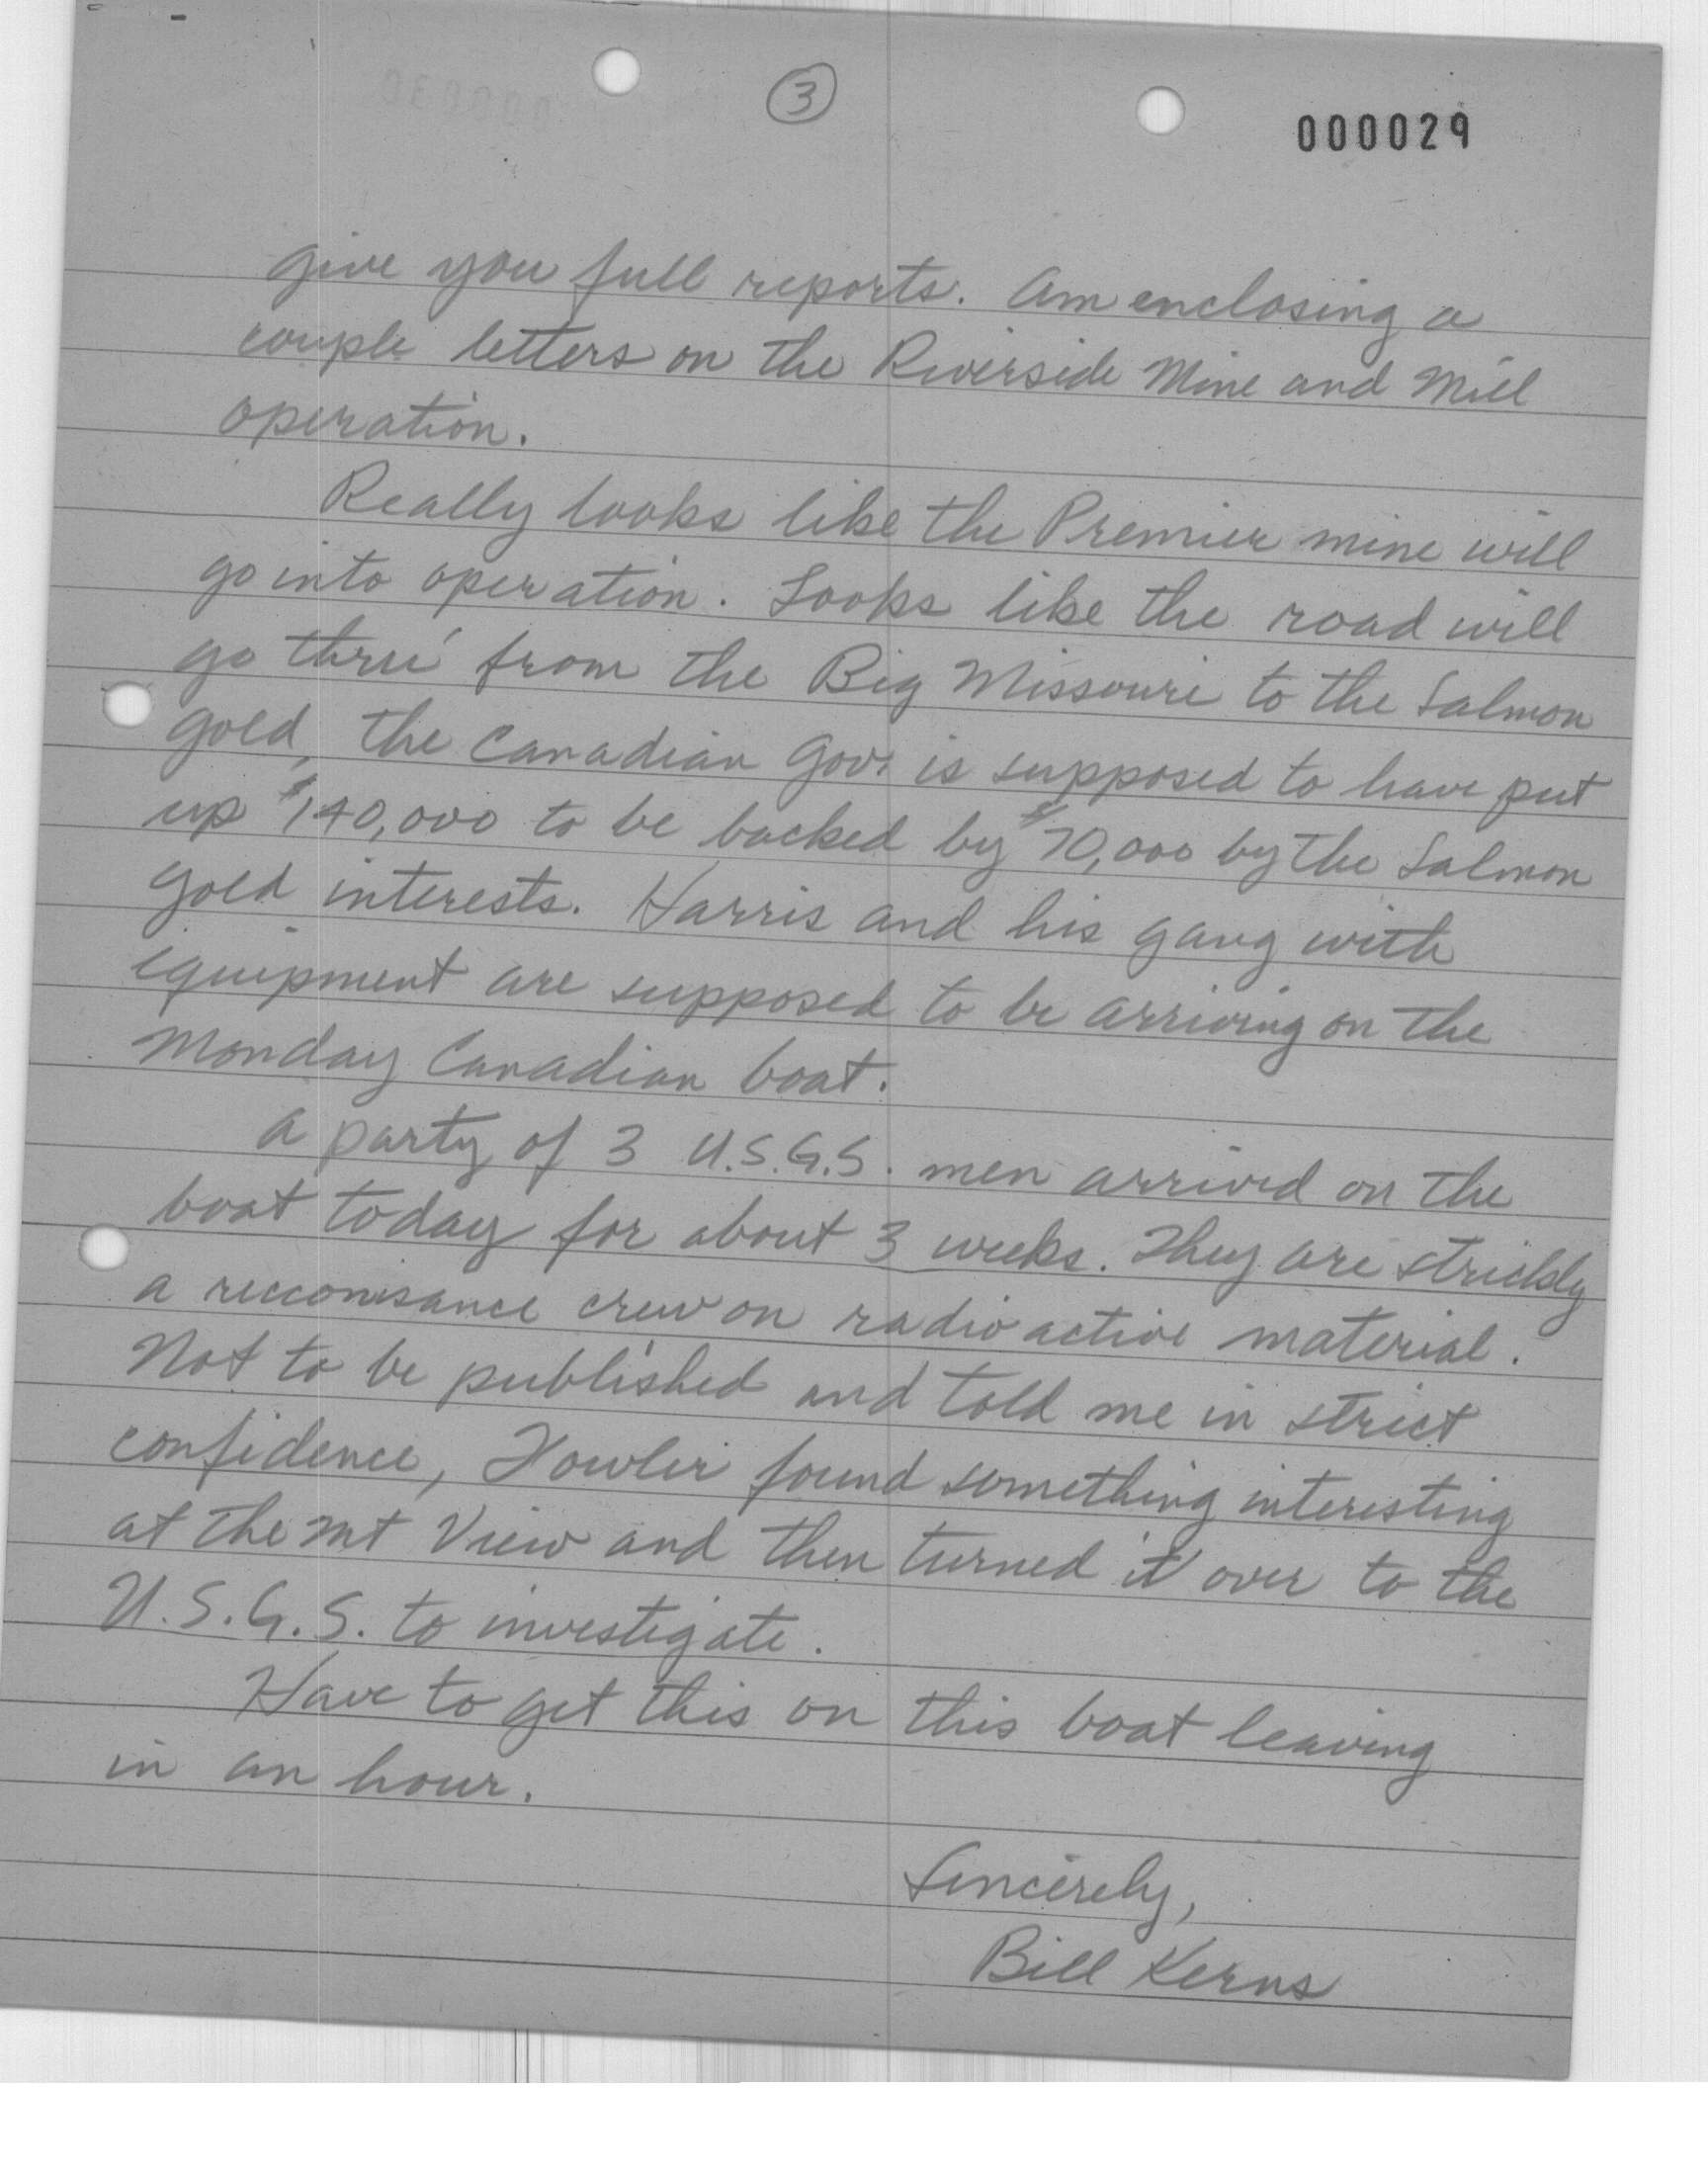 3
000029
give you full reports. Am enclosing a
couple letters on the Riverside Mine and Mill
operation.
Really looks like the Premier mine will
go into operation. Looks like the road will
go thru' from the Big Missouri to the Salmon
Gold, the Canadian Gov. is supposed to have put
up $140,000 to be backed by $70,000 by the Salmon
Gold interests. Harris and his gang with
equipment are supposed to be arriving on the
Monday Canadian boat.
A party of 3 U.S.G.S. men arrived on the
boat today for about 3 weeks. They are strickly
a recconisance crew on radio active material.
Not to be published and told me in strict
confidence, Fowler found something interesting
at the Mt View and then turned it over to the
U.S.G.S. to investigate.
Have to get this on this boat leaving
in an hour.
Sincerely,
Bill Kerns